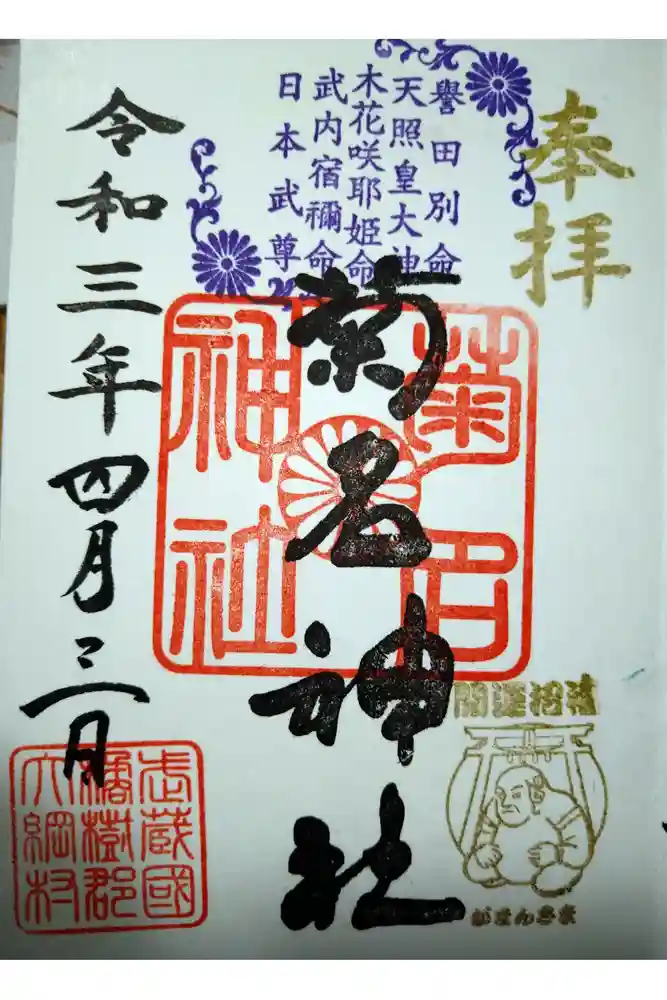 奉拝
譽田別命
天照皇大神
木花咲耶姫命
武内宿禰命
日本武尊
菊名神社
菊名
神社
令和三年四月三日
開運招福
がまんさま
武蔵國
橘樹郡
大綱村